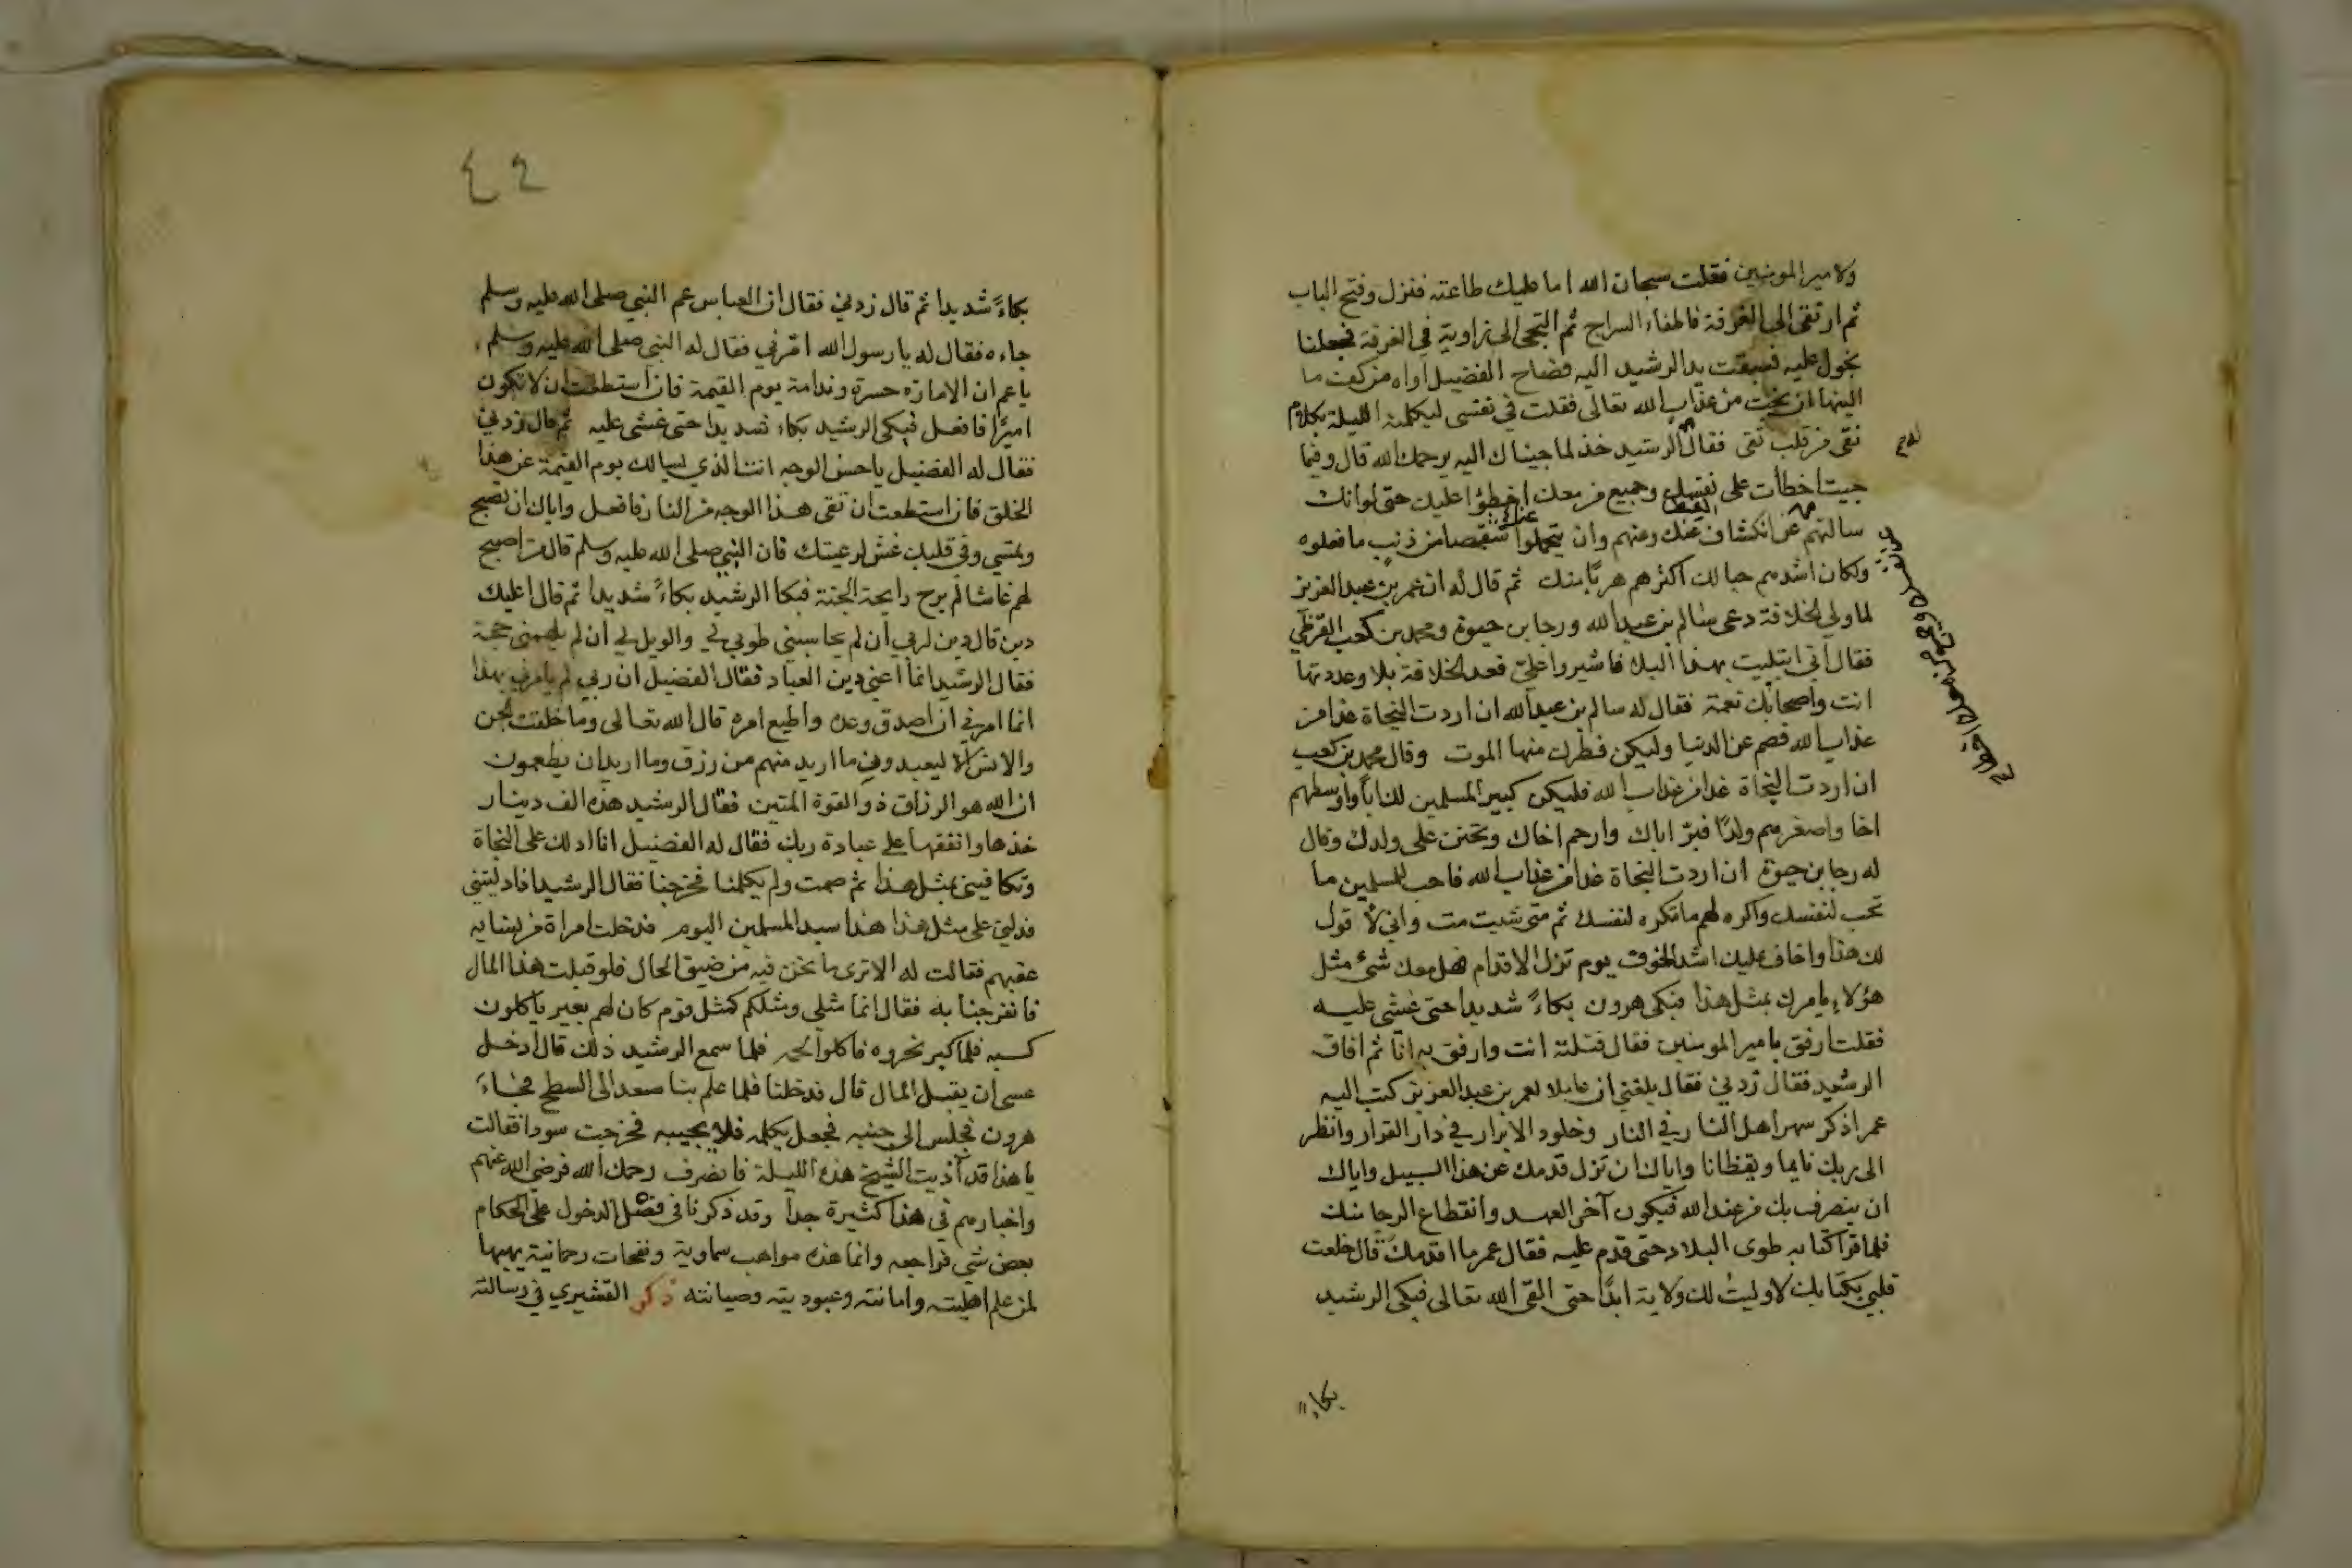 ولامير المومنين فقلت سبحان الله اما عليك طاعته فنزل وفتح الباب
ثم ارتقى الى الغرفة فاطفاء السراج ثم التجى الى زاوية في الغرفة فجعلنا
نجول عليه فسبقت يد الرشيد اليه فصاح الفضيل اواه من كف ما
الينها ان نجت من عذاب الله تعالى فقلت في نفسى ليكلمنه الليلة بكلام
نقى من قلب تقى فقال الرشيد خذ لما جيناك اليه يرحمك الله قال وفيما
جيت اخطأت على نفسك وجميع من معك اخطؤا عليك حتى لوانك
سالتهم عن انكشاف عنك وعنهم وان يتحملوا عنك شقصا من ذنب ما فعلوه
ولكان اشدهم حبا لك اكثرهم هربًا منك ثم قال له ان عمر بن عبد العزيز
لما ولي الخلافة دعى سالم بن عبد الله ورجا بن حيوة ومحمد بن كعب القرظي
فقال اني ابتليت بهذا البلا فاشيروا علي فعد الخلافة بلا وعددتها
انت واصحابك نعمة فقال له سالم بن عبد الله ان اردت النجاة غدا من
عذاب الله فصم عن الدنيا وليكن فطرك منها الموت وقال محمد بن كعب
ان اردت النجاة غدا من عذاب الله فليكن كبير المسلمين لك اباً واوسطهم
اخا واصغرهم ولدًا فبرّ اباك وارحم اخاك وتحنن على ولدك وقال
له رجا بن حيوة ان اردت النجاة غدا من عذاب الله فاحب للمسلمين ما
تحب لنفسك واكره لهم ما تكره لنفسك ثم متى شيت مت واني لأ قول
لك هذا واخاف عليك اشد الخوف يوم تزل الاقدام فهل معك شئ مثل
هؤلاء يامرك بمثل هذا فبكى هرون بكاءً شديدا حتى غشى عليه
فقلت ارفق بامير المومنين فقال قتلته انت وارفق به انا ثم افاق
الرشيد فقال زدني فقال بلغني ان عاملا لعمر بن عبد العزيز كتب اليه
عمر اذكر سهر اهل النار في النار وخلود الابرار في دار القرار وانظر
الى ربك نايما ويقظانا واياك ان تزل قدمك عن هذا السبيل واياك
ان ينصرف بك من عند الله فيكون آخر العهد وانقطاع الرجا منك
فلما قرا كتابه طوى البلاد حتى قدم عليه فقال عمر ما اقدمك قال خلعت
قلبي بكتابك لا وليت لك ولاية ابدًا حتى القى الله تعالى فبكى الرشيد
بكاء
٤٢
بكاءً شديدا ثم قال زدني فقال ان العباس عم النبي صلى الله عليه وسلم
جاءه فقال له يا رسول الله امّرني فقال له النبي صلى الله عليه وسلم
يا عم ان الامارة حسرة وندامة يوم القيمة فان استطعت ان لا تكون
اميرًا فافعل فبكى الرشيد بكاء شديدا حتى غشى عليه ثم قال زدني
فقال له الفضيل يا حسن الوجه انت الذي يسالك يوم القيمة عن هذا
الخلق فان استطعت ان تقى هذا الوجه من النار فافعل واياك ان تصبح
وتمسي وفي قلبك غش لرعيتك فان النبي صلى الله عليه وسلم قال من اصبح
لهم غاشا لم يرح رايحة الجنة فبكا الرشيد بكاءً شديدا ثم قال اعليك
دين قال دين لربي ان لم يحاسبني طوبى لي والويل لي ان لم يلهمني حجة
فقال الرشيد انما أعني دين العباد فقال الفضيل ان ربي لم يامرني بهذا
انما امرني ان اصدق وعده واطيع امره قال الله تعالى وما خلقت الجن
والانس الا ليعبدون ما اريد منهم من رزق وما اريد ان يطعمون
ان الله هو الرزاق ذو القوة المتين فقال الرشيد هذه الف دينار
خذها وانفقها على عبادة ربك فقال له الفضيل انا ادلك على النجاة
وتكافيني بمثل هذا ثم صمت ولم يكلمنا فخرجنا فقال الرشيد اذا دليتني
فدلني على مثل هذا هذا سيد المسلمين اليوم فدخلت امراة من نسايه
عقبهم فقالت له الا ترى ما نحن فيه من ضيق الحال فلو قبلت هذا المال
فانفرجنا به فقال انما مثلي ومثلكم كمثل قوم كان لهم بعير ياكلون
كسبه فلما كبر نحروه فاكلوا لحمه فلما سمع الرشيد ذلك قال ادخل
عسى ان يقبل المال قال فدخلنا فلما علم بنا صعد الى السطح فجاءَ
هرون فجلس الى جنبه فجعل يكلمه فلا يجيبه فخرجت سودا فقالت
يا هذا قد آذيت الشيخ هذه الليلة فانصرف رحمك الله فرضى الله عنهم
واخبارهم في هذا كثيرة جدا وقد ذكرنا في فصل الدخول على الحكام
بعض شي فراجعه وانما هذه مواهب سماوية ونفحات رحمانية يهبها
لمن علم اهليته وامانته وعبوديته وصيانته ذكر القشيري في رسالته